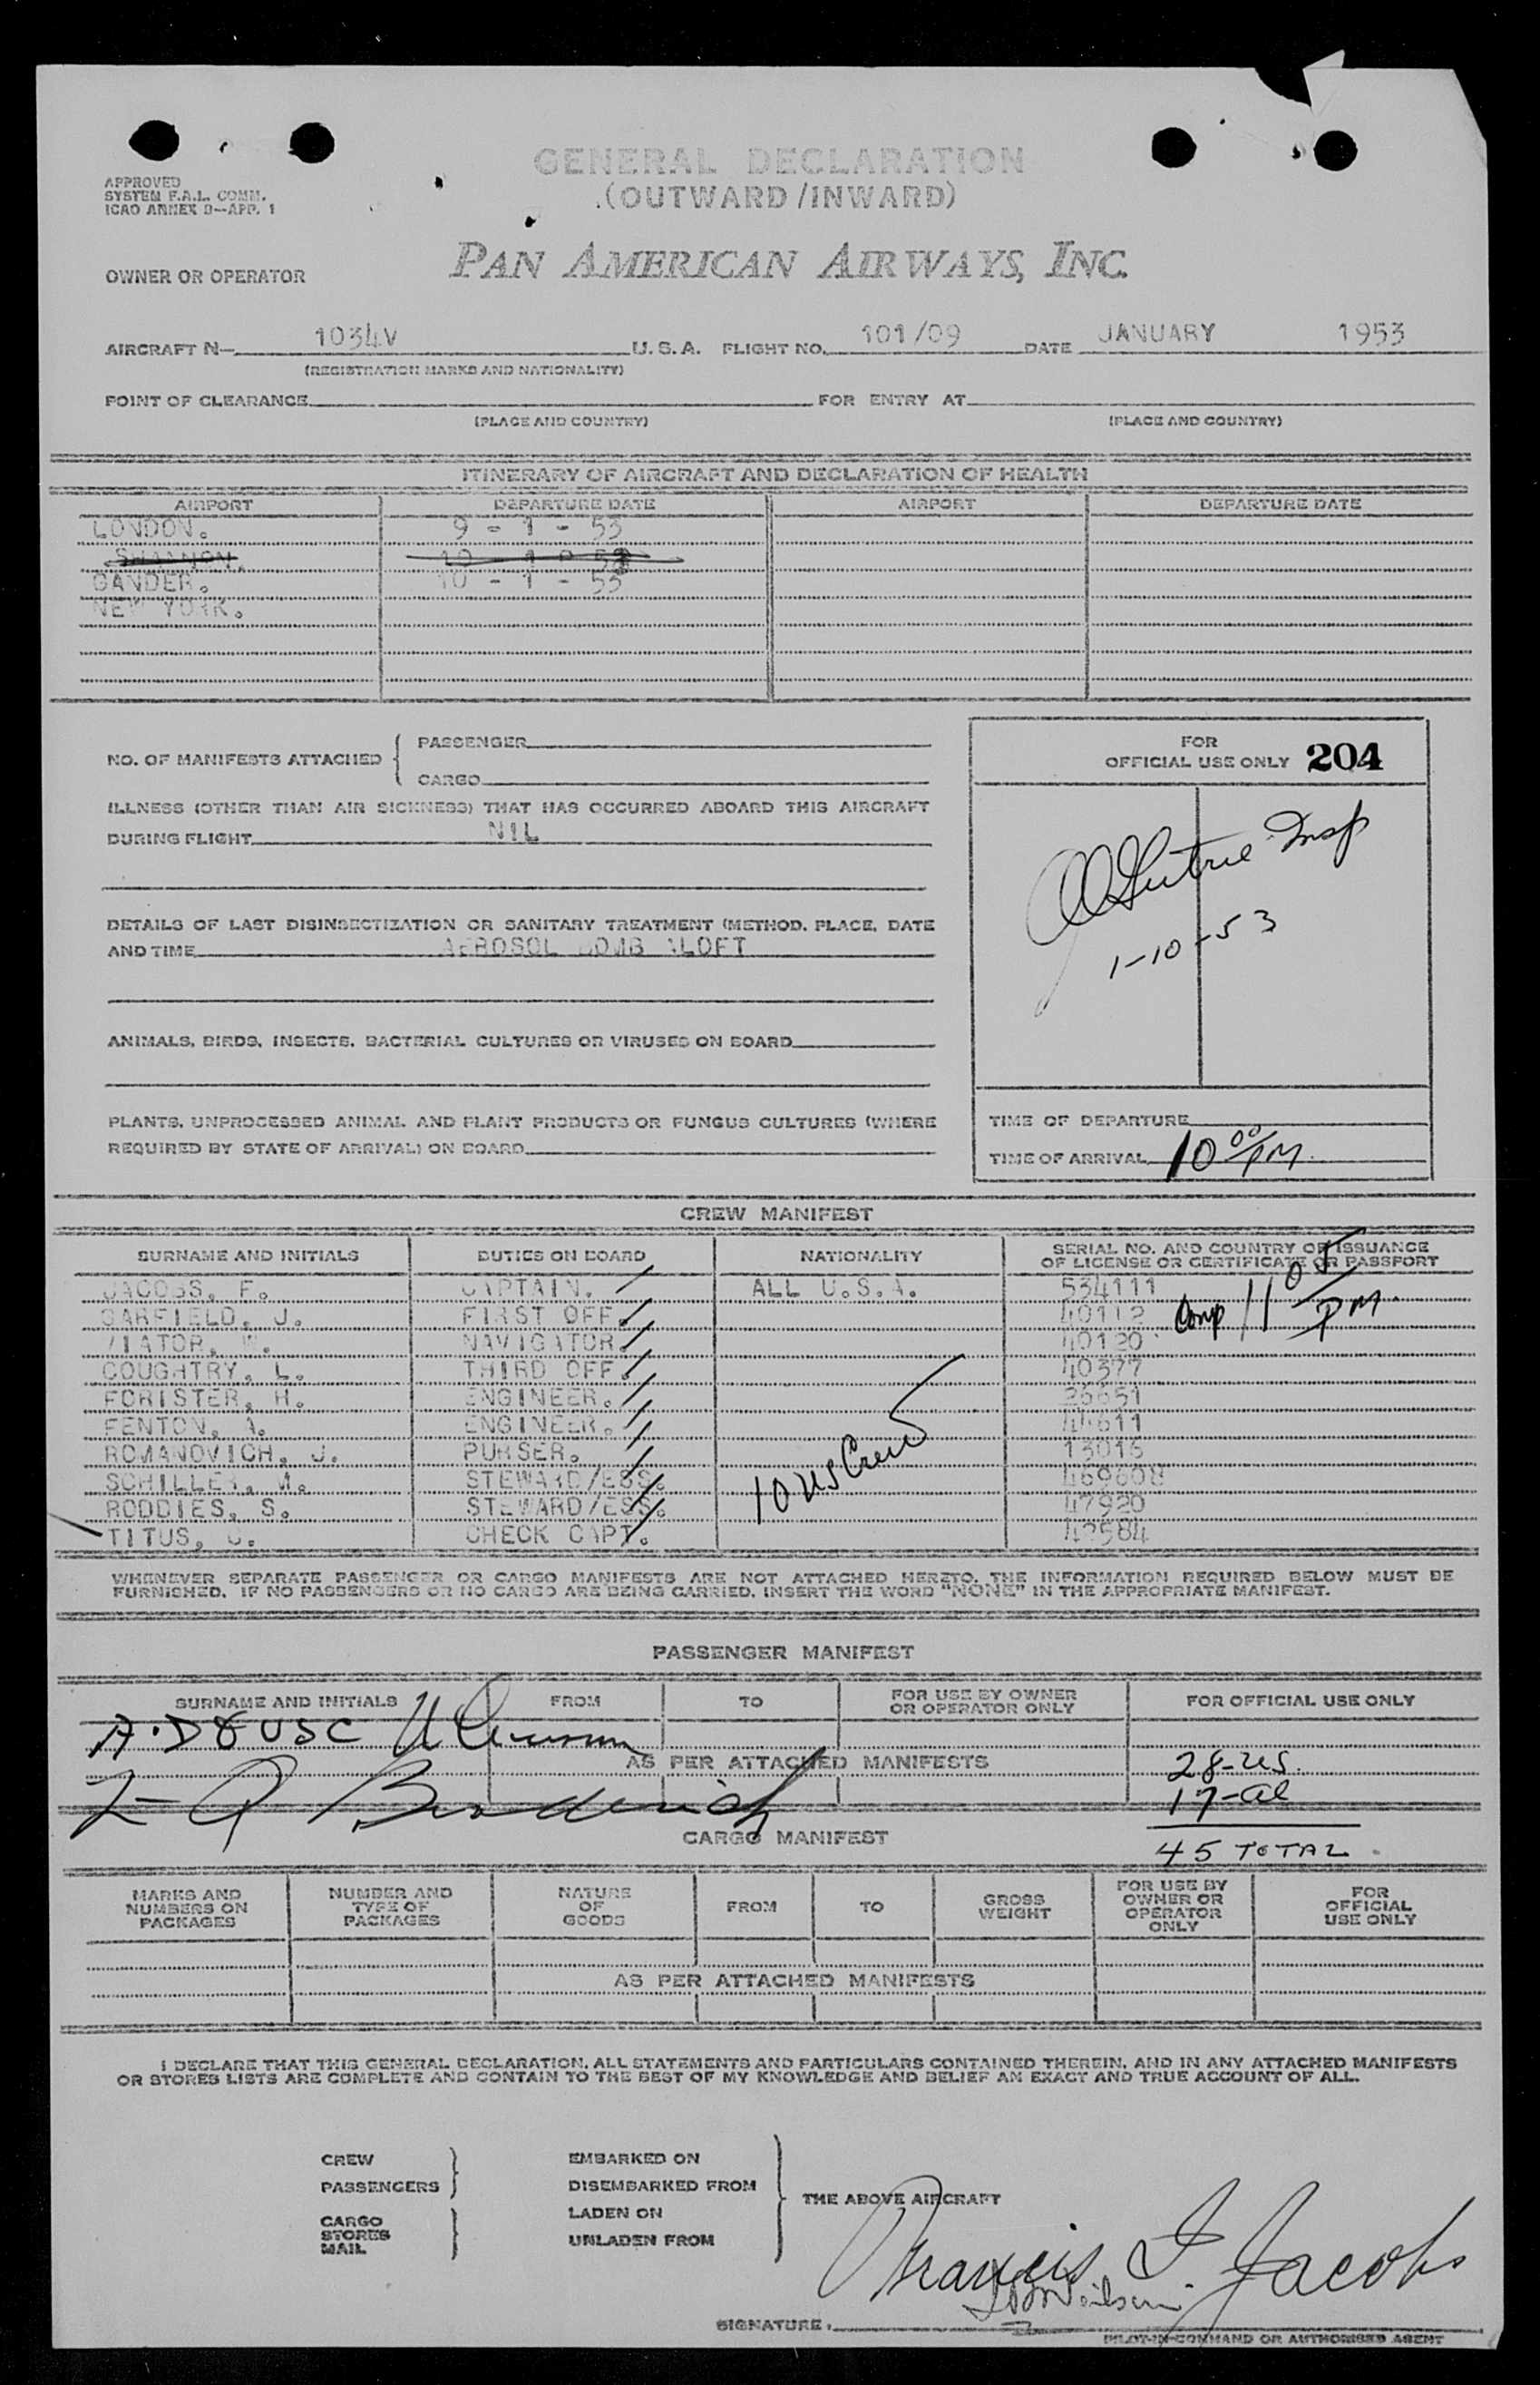 GENERAL DECLARATION
(OUTWARD/INWARD)
APPROVED
SYSTEM F.A.L. COMM.
ICAO ANNEX 9—APP. 1
OWNER OR OPERATOR PAN AMERICAN AIRWAYS, INC.
AIRCRAFT N— 1034V U.S.A. FLIGHT NO. 101/09 DATE JANUARY 1953
(REGISTRATION MARKS AND NATIONALITY)
POINT OF CLEARANCE FOR ENTRY AT
(PLACE AND COUNTRY) (PLACE AND COUNTRY)
ITINERARY OF AIRCRAFT AND DECLARATION OF HEALTH
AIRPORT DEPARTURE DATE AIRPORT DEPARTURE DATE
LONDON. 9 - 1 - 53
SHANNON. 10 - 1 - 53
GANDER. 10 - 1 - 53
NEW YORK.
NO. OF MANIFESTS ATTACHED { PASSENGER
CARGO
ILLNESS (OTHER THAN AIR SICKNESS) THAT HAS OCCURRED ABOARD THIS AIRCRAFT
DURING FLIGHT NIL
DETAILS OF LAST DISINSECTIZATION OR SANITARY TREATMENT (METHOD, PLACE, DATE
AND TIME AEROSOL BOMB ALOFT
ANIMALS, BIRDS, INSECTS, BACTERIAL CULTURES OR VIRUSES ON BOARD
PLANTS, UNPROCESSED ANIMAL AND PLANT PRODUCTS OR FUNGUS CULTURES (WHERE
REQUIRED BY STATE OF ARRIVAL) ON BOARD
FOR
OFFICIAL USE ONLY 204
Insp
1-10-53
TIME OF DEPARTURE
TIME OF ARRIVAL 10 00/PM
CREW MANIFEST
SURNAME AND INITIALS DUTIES ON BOARD NATIONALITY SERIAL NO. AND COUNTRY OF ISSUANCE
OF LICENSE OR CERTIFICATE OR PASSPORT
JACOBS, F. CAPTAIN. ALL U.S.A. 534111
GARFIELD, J. FIRST OFF. 40112 Comp 11 05/PM.
VIATOR, W. NAVIGATOR. 40120
COUGHTRY, L. THIRD OFF. 40377
FORISTER, H. ENGINEER. 26651
FENTON, A. ENGINEER. 44611
ROMANOVICH, J. PURSER. 13015
SCHILLER, M. STEWARD/ESS. 469608
RODDIES, S. STEWARD/ESS. 47920
TITUS, CHECK CAPT. 42584
10 US Crew
WHENEVER SEPARATE PASSENGER OR CARGO MANIFESTS ARE NOT ATTACHED HERETO, THE INFORMATION REQUIRED BELOW MUST BE
FURNISHED. IF NO PASSENGERS OR NO CARGO ARE BEING CARRIED, INSERT THE WORD "NONE" IN THE APPROPRIATE MANIFEST.
PASSENGER MANIFEST
SURNAME AND INITIALS FROM TO FOR USE BY OWNER
OR OPERATOR ONLY FOR OFFICIAL USE ONLY
AS PER ATTACHED MANIFESTS
28-US.
17-al
45 TOTAL
CARGO MANIFEST
MARKS AND
NUMBERS ON
PACKAGES
NUMBER AND
TYPE OF
PACKAGES
NATURE
OF
GOODS
FROM
TO
GROSS
WEIGHT
FOR USE BY
OWNER OR
OPERATOR
ONLY
FOR
OFFICIAL
USE ONLY
AS PER ATTACHED MANIFESTS
I DECLARE THAT THIS GENERAL DECLARATION, ALL STATEMENTS AND PARTICULARS CONTAINED THEREIN, AND IN ANY ATTACHED MANIFESTS
OR STORES LISTS ARE COMPLETE AND CONTAIN TO THE BEST OF MY KNOWLEDGE AND BELIEF AN EXACT AND TRUE ACCOUNT OF ALL.
CREW
PASSENGERS
CARGO
STORES
MAIL
EMBARKED ON
DISEMBARKED FROM
LADEN ON
UNLADEN FROM
THE ABOVE AIRCRAFT
Francis J Jacobs
SIGNATURE.
PILOT-IN-COMMAND OR AUTHORISED AGENT